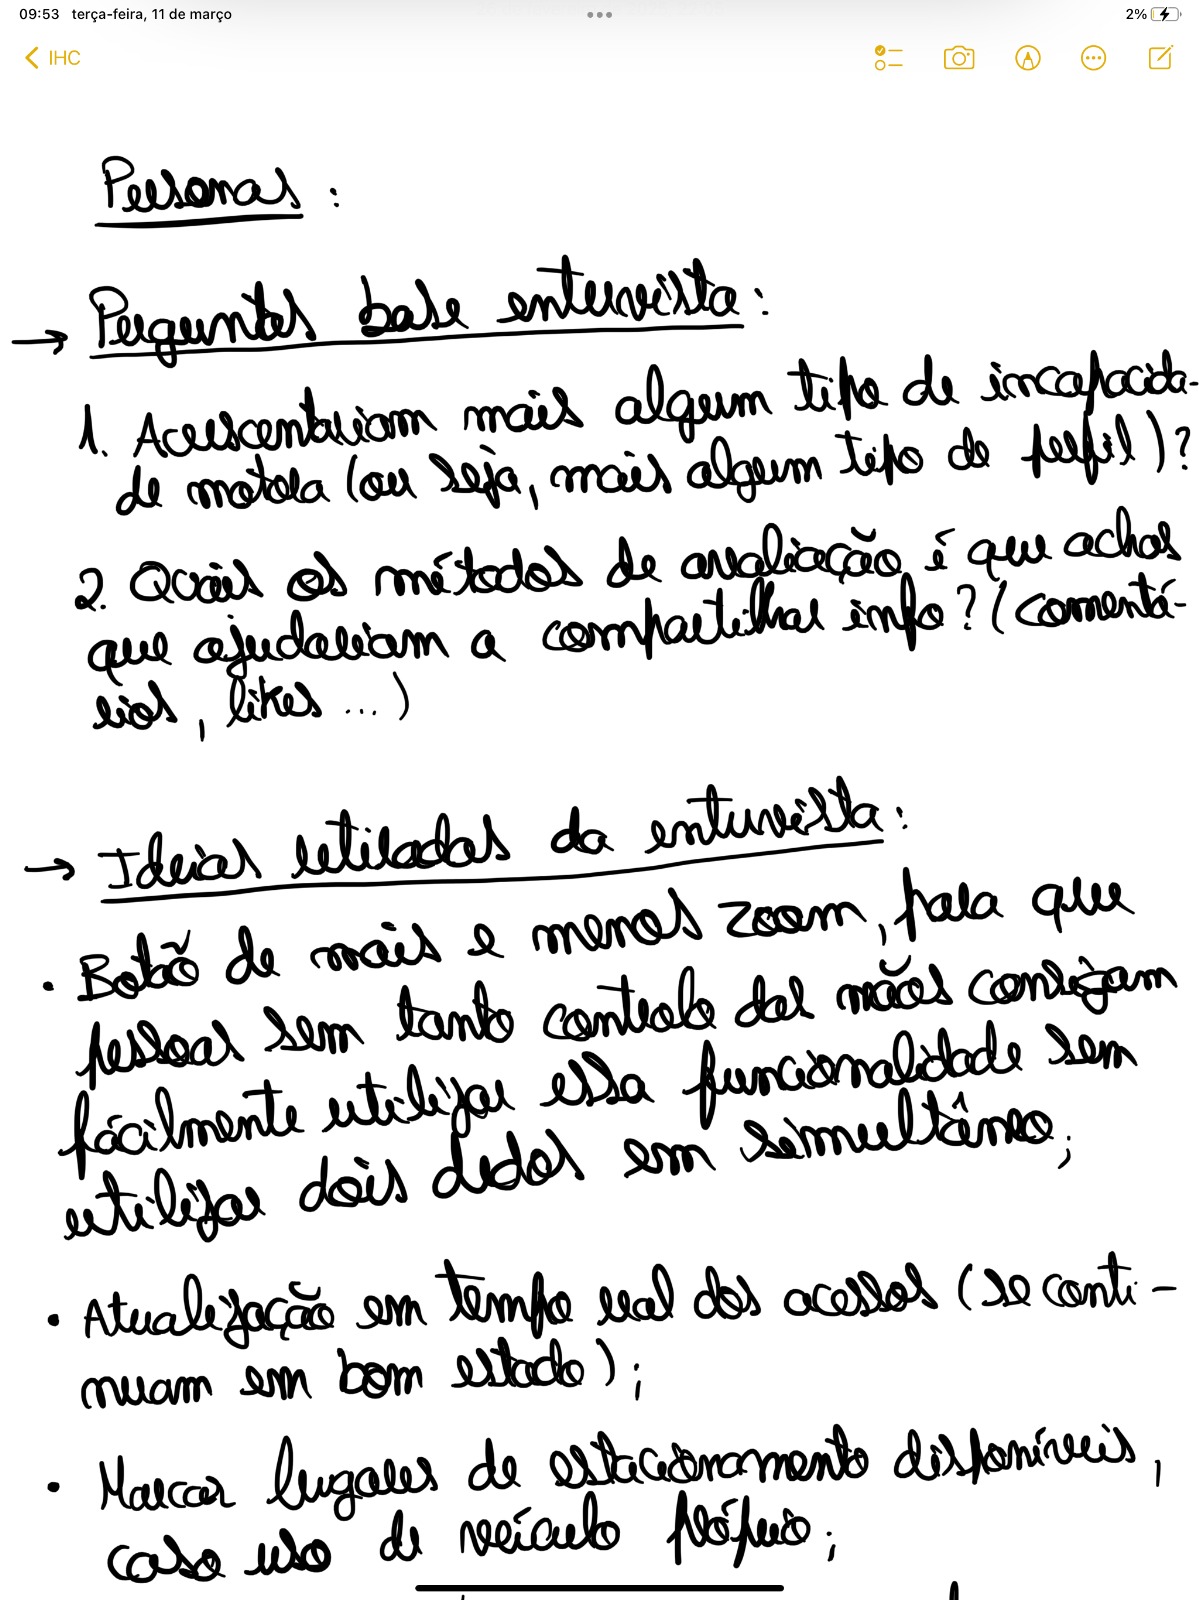 09:53 terça-feira, 11 de março
2%
IHC
Personas :
→ Perguntas base entrevista :
1. Acrescentariam mais algum tipo de incapacida-
de motora (ou seja, mais algum tipo de perfil)?
2. Quais os métodos de avaliação é que achas
que ajudariam a compartilhar info? (comentá-
rios, likes ...)
→ Ideias retiradas da entrevista :
• Botão de mais e menos zoom, para que
pessoas sem tanto controlo das mãos consigam
fácilmente utilizar essa funcionalidade sem
utilizar dois dedos em simultâneo;
• Atualização em tempo real dos acessos (se conti-
nuam em bom estado);
• Marcar lugares de estacionamento disponíveis,
caso uso de veículo próprio;